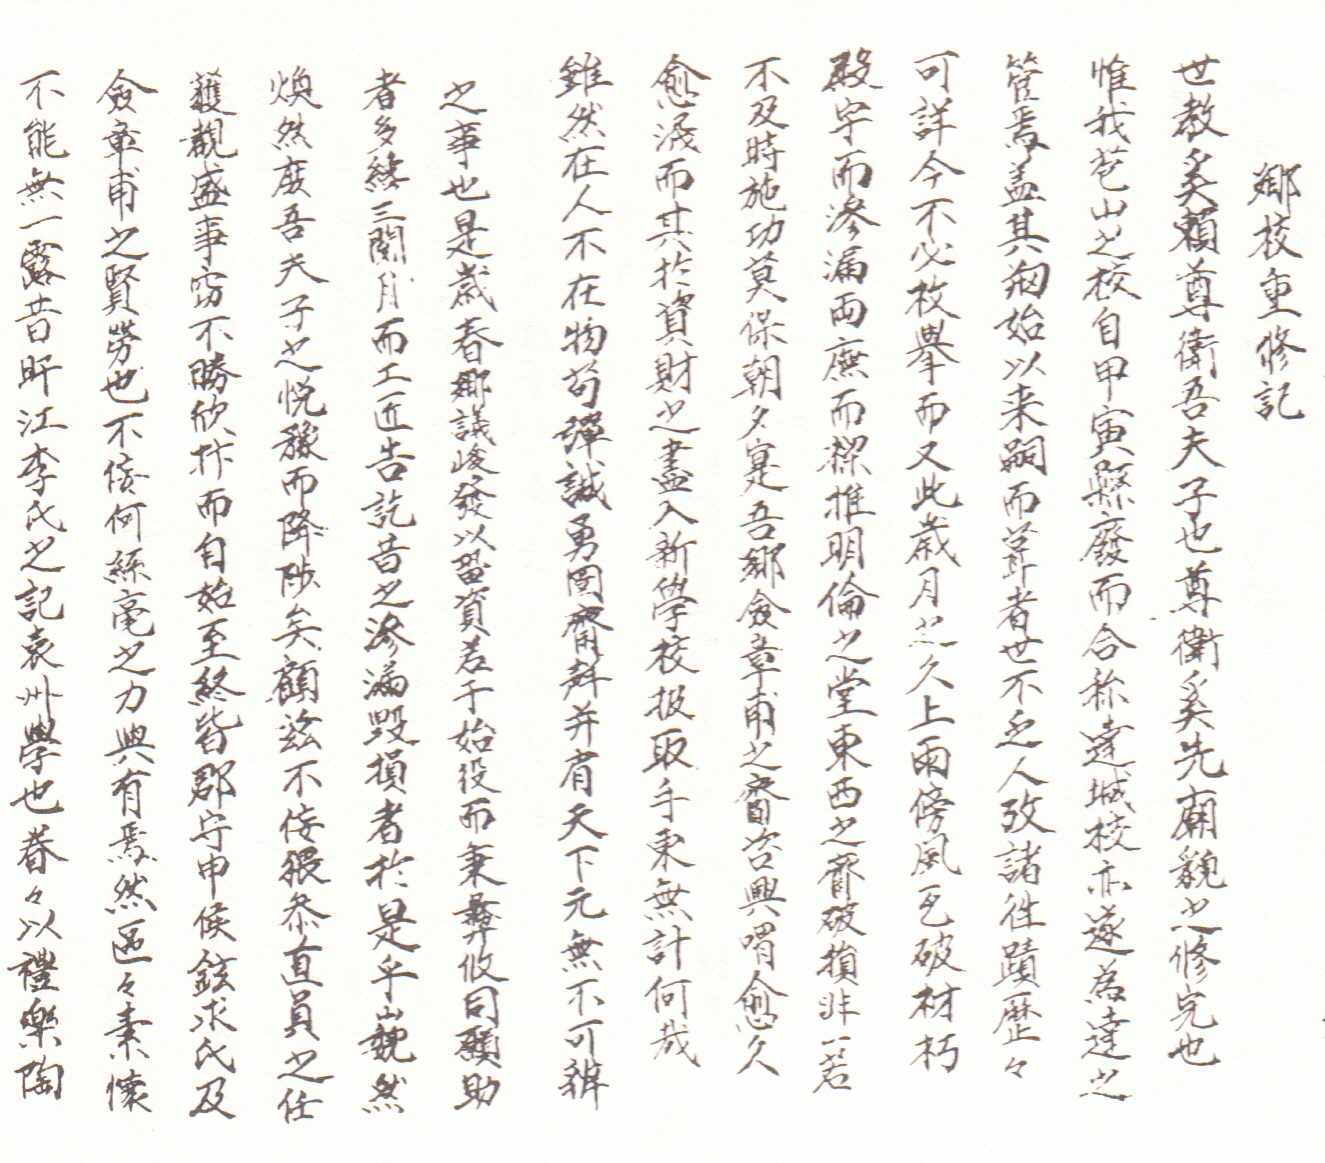 鄕校重修記
世敎奚賴尊衛吾夫子也尊衛奚先廟貌之修完也
惟我苞山之校自甲寅縣廢而合称達城校亦遂為達之
管焉盖其刱始以来嗣而葺者世不乏人攷諸徃蹟歷々
可詳今不必枚擧而又此歲月之久上雨傍風瓦破材朽
殿宇而滲漏兩廡而樑摧明倫之堂東西之齋破損非一若
不及時施功莫保朝夕寔吾鄕僉章甫之齎咨興喟愈久
愈濺而其於資財之盡入新學校报取手束無計何哉
雖然在人不在物苟殫誠勇罔齊斜并肩天下元無不可辦
之事也是歲春鄕議峻發以畱資若于始役而秉彛攸同願助
者多終三閱月而工匠告訖昔之滲漏毀損者於是乎巍然
煥然庻吾夫子之悅豫而降陟矣顧玆不侫猥叅直員之任
護覩盛事窃不勝欣抃而自始至終皆郡守申候鉉求氏及
僉章甫之賢勞也不侫何絲毫之力與有焉然區々素懷
不能無一露昔盱江李氏之記袁州學也眷々以禮樂陶